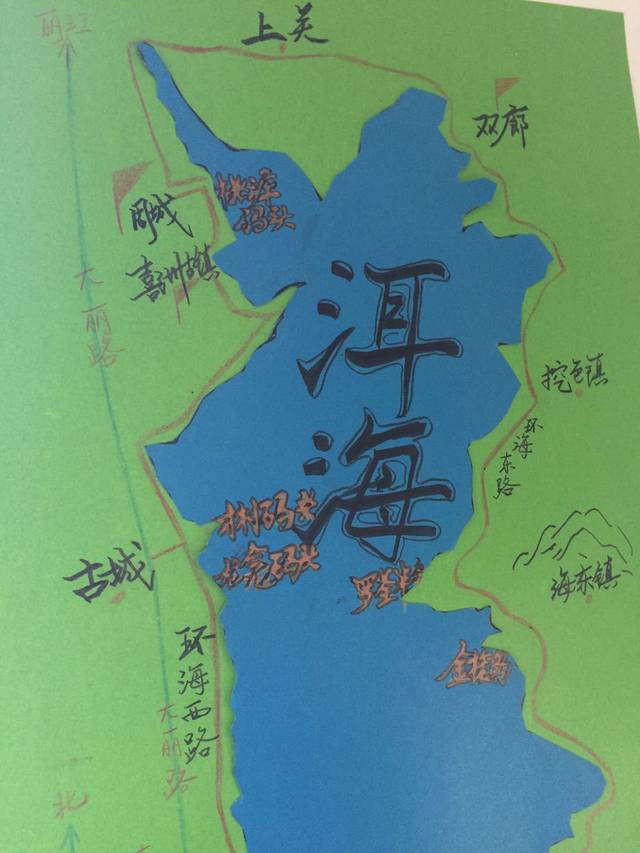 丽江
上关
双廊
桃源
码头
周城
喜洲古镇
大
丽
路
洱
海
挖色镇
环
海
东
路
才村码头
龙龛码头
罗荃半岛
古城
海东镇
金梭岛
环
海
西
路
大
丽
路
北